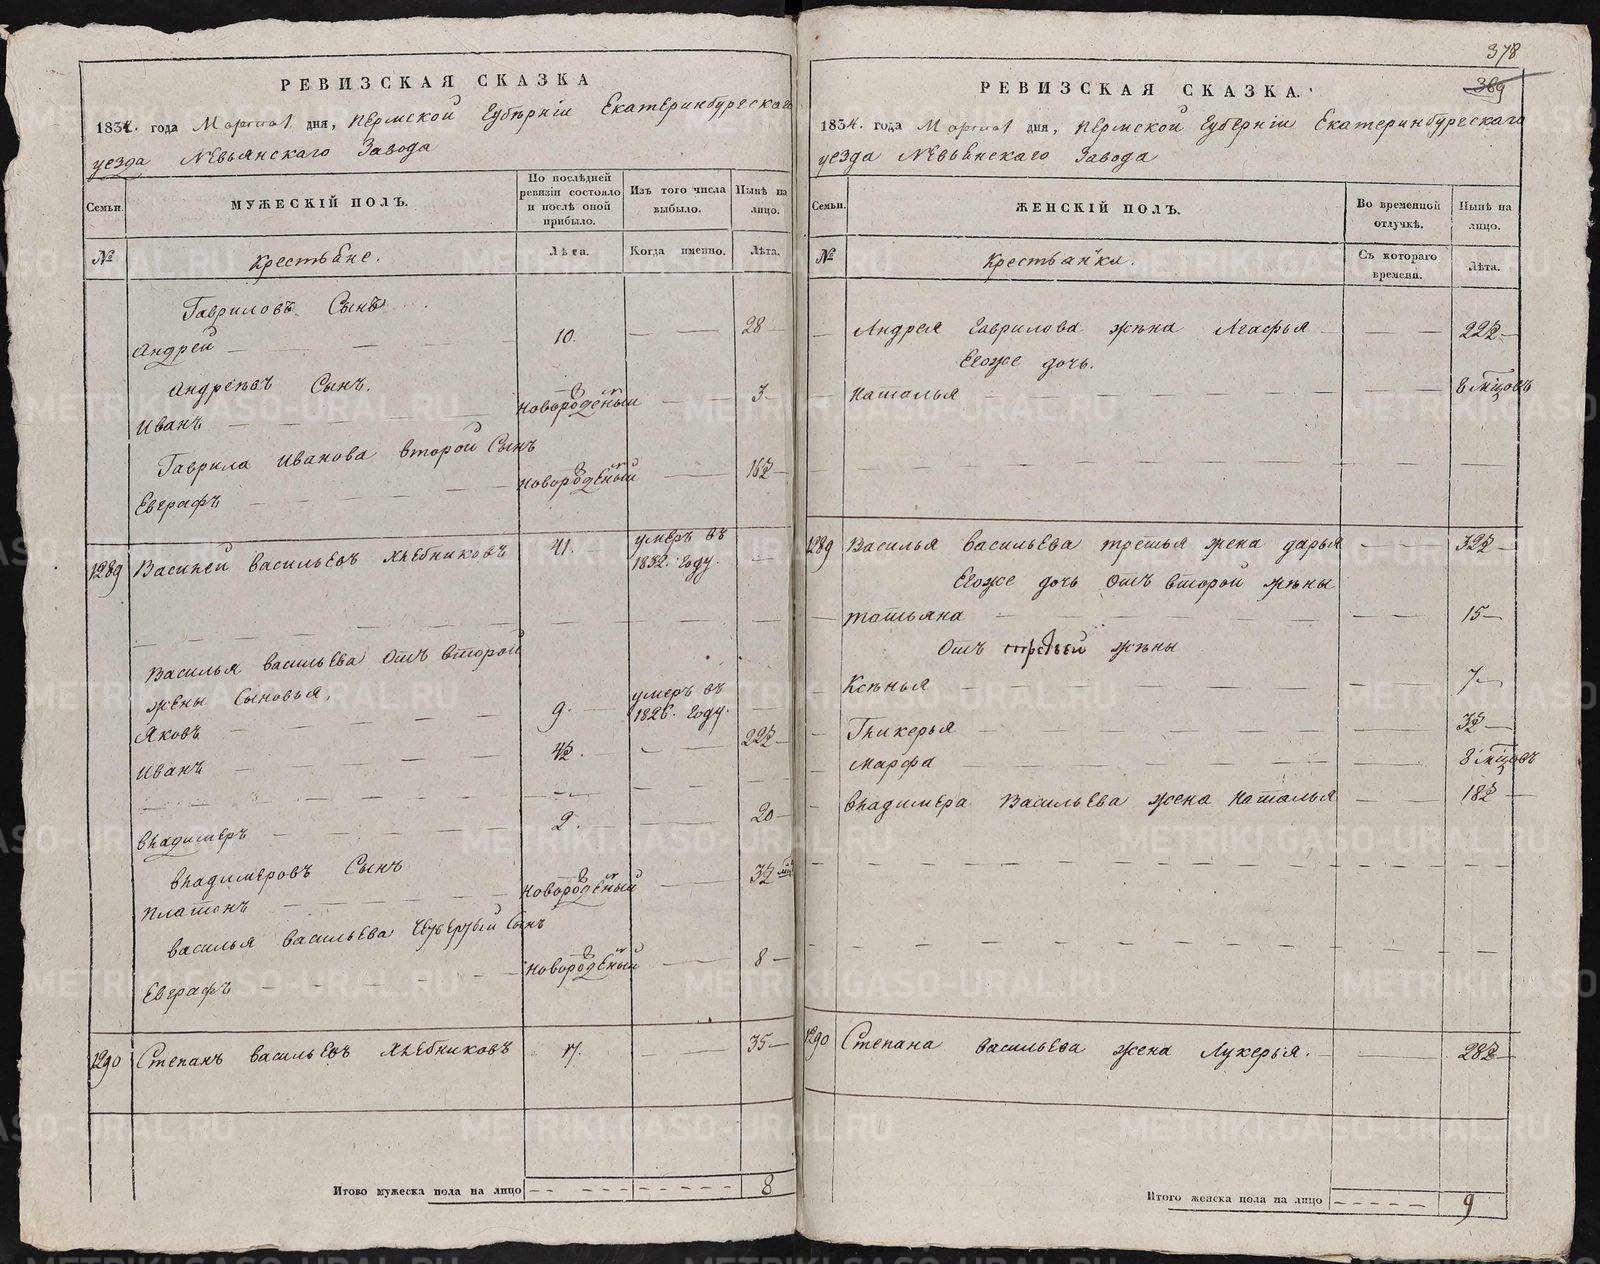 РЕВИЗСКАЯ СКАЗКА
1834. года Марта 1 дня, Пермской Губѣрніи Екатеринбургскаго
уезда Невьянскаго Завода
Семьи.
МУЖЕСКІЙ ПОЛЪ.
По послѣдней ревизіи состояло и послѣ оной прибыло.
Изъ того числа выбыло.
Нынѣ на лицо.
№
Крестьяне.
Лѣта.
Когда именно.
Лѣта.
Гавриловъ Сынъ
Андрей 10. 28
Андреевъ Сынъ.
Иванъ новорожденый 3
Гаврила Иванова второй Сынъ
Евграфъ новорожденый 16½
1289 Василей Васильевъ Хлебниковъ 41. умеръ въ 1832. Году.
Василья Васильева Отъ второй
жены Сыновья,
Яковъ 9. умеръ въ 1826. Году.
Иванъ 4½ 22½
Владимеръ 2. 20
Владимеровъ Сынъ
Платонъ новорожденый 3½ мѣ
Василья Васильева Четвертый Сынъ
Евграфъ новорожденый 8
1290 Степанъ Васильевъ Хлебниковъ 17. 35
Итого мужеска пола на лицо 8
378
369
РЕВИЗСКАЯ СКАЗКА.
1834. года Марта 1 дня, Пермской Губерніи Екатеринбургскаго
уезда Невьянскаго Завода
Семьи.
ЖЕНСКІЙ ПОЛЪ.
Во временной отлучкѣ.
Нынѣ на лицо.
№
Крестьянки.
Съ котораго времени.
Лѣта.
Андрея Гаврилова жена Агафья 22½
Егоже дочь.
Наталья 8 мѣсцовъ
1289 Василья Васильева третья жена дарья 32½
Егоже дочь Отъ второй жены
татьяна 15
Отъ третьей жены
Ксенья 7
Гликерья 3½
Марфа 8 мѣсцовъ
Владимера Васильева жена Наталья 18½
1290 Степана Васильева жена Лукерья. 28½
Итого женска пола на лицо 9
METRIKI.GASO-URAL.RU